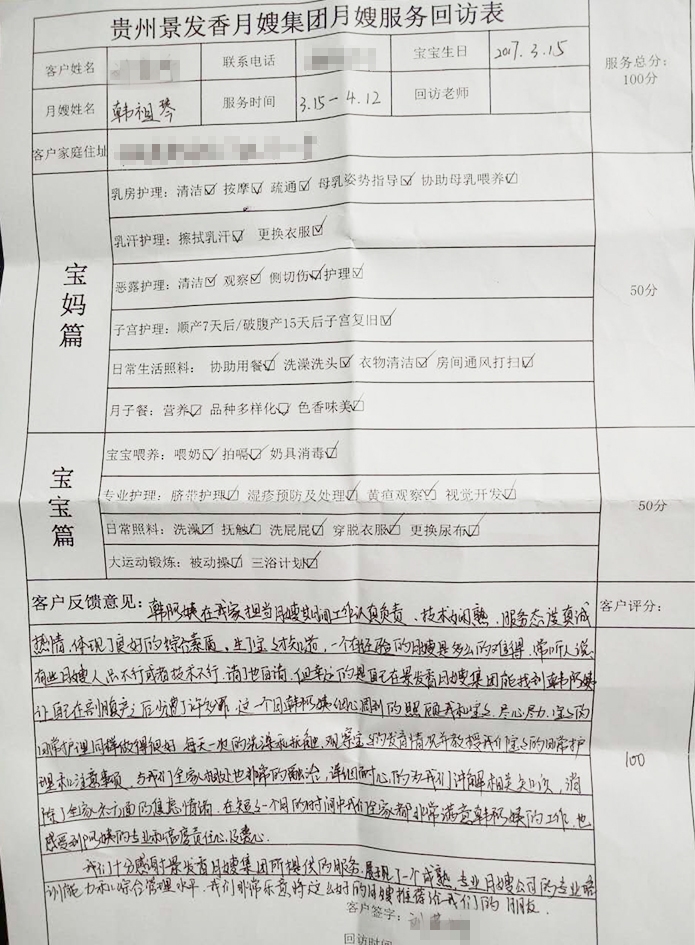 贵州景发香月嫂集团月嫂服务回访表
客户姓名 联系电话 宝宝生日 2017.3.15 服务总分：100分
月嫂姓名 韩祖琴 服务时间 3.15－4.12 回访老师
客户家庭住址
宝妈篇
乳房护理：清洁☑ 按摩☑ 疏通☑ 母乳姿势指导☑ 协助母乳喂养☑
乳汗护理：擦拭乳汗☑ 更换衣服☑
恶露护理：清洁☑ 观察☑ 侧切伤☑护理☑
50分
子宫护理：顺产7天后/破腹产15天后子宫复旧☑
日常生活照料： 协助用餐☑ 洗澡洗头☑ 衣物清洁☑ 房间通风打扫☑
月子餐：营养☑ 品种多样化☑ 色香味美☑
宝宝篇
宝宝喂养：喂奶☑ 拍嗝☑ 奶具消毒☑
专业护理：脐带护理☑ 湿疹预防及处理☑ 黄疸观察☑ 视觉开发☑
50分
日常照料：洗澡☑ 抚触☑ 洗屁屁☑ 穿脱衣服☑ 更换尿布☑
大运动锻炼：被动操☑ 三浴计划☑
客户反馈意见：韩阿姨在我家担当月嫂其时间工作认真负责、技术的闲熟，服务态度真诚
客户评分：
热情，体现了良好的综合素质。生了宝宝才知道，一个有经验的月嫂是多么的难得，常听人说
有些月嫂人品不行或者技术不行，请了也白请，但幸运的是自己在景发香月嫂集团能找到韩阿姨
让自己在剖腹产之后少遭了许多罪，这一个月韩阿姨细心周到的照顾我和宝宝，尽心尽力，宝宝的
日常护理同样做得很好，每天一次的洗澡和抚触，观察宝宝的发育情况并教授我们宝宝的日常护
理和注意事项，与我们全家相处也非常的融洽，详细耐心的为我们讲解相关知识，消
100
除了全家各方面的焦虑情绪。在短短一个月的时间中我们全家都非常满意韩阿姨的工作，也
感受到阿姨的专业和高度责任心及爱心。
我们十分感谢景发香月嫂集团所提供的服务，展现了一个成熟、专业月嫂公司的专业培
训能力和综合管理水平。我们非常乐意将这么好的月嫂推荐给我们的朋友。
客户签字：刘
回访时间